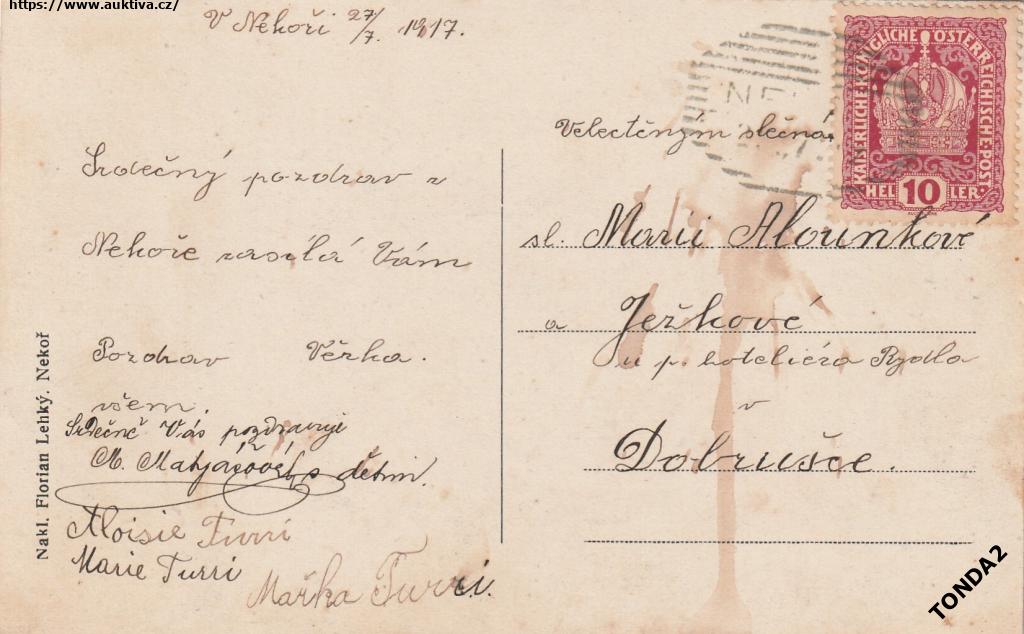 https://www.auktiva.cz/
V Nekoři 27/7. 1917.
Srdečný pozdrav z
Nekoře zasílá Vám
Pozdrav Věrka.
všem.
Srdečně Vás pozdravuje
M. Matyášová s dětmi.
Aloisie Turri
Marie Turri
Mařka Turri.
Nakl. Florian Lehký. Nekoř
KAISERLICHE KÖNIGLICHE ÖSTERREICHISCHE POST
HELLER
10
NE
Velectěným slečnám
sl. Marii Alounkové
a Ježkové
u p. hoteliéra Rydla
v
Dobrušce.
TONDA2